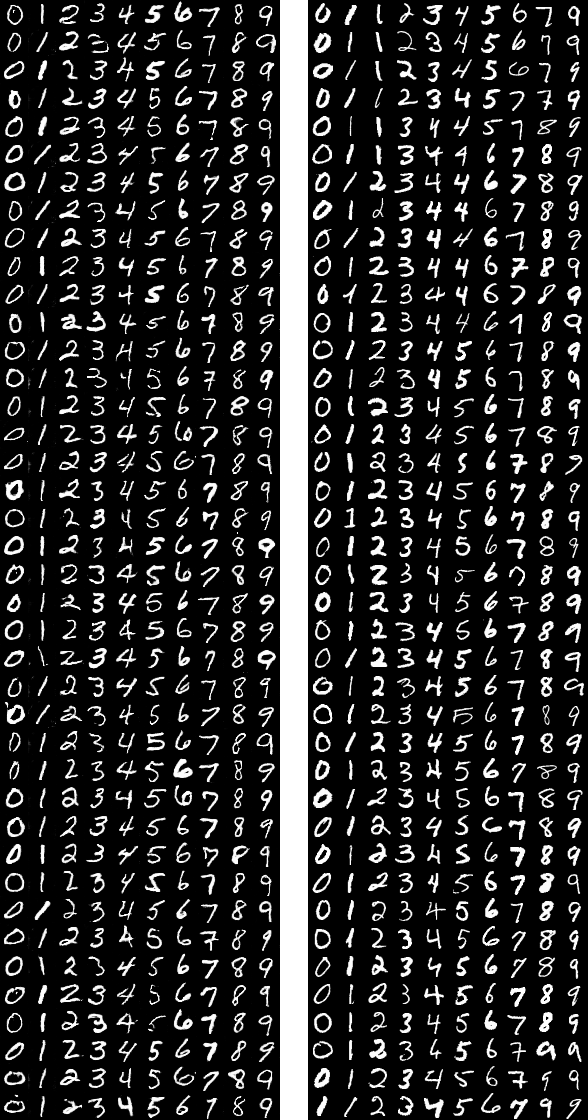 0 1 2 3 4 5 6 7 8 9
0 1 2 3 4 5 6 7 8 9
0 1 2 3 4 5 6 7 8 9
0 1 2 3 4 5 6 7 8 9
0 1 2 3 4 5 6 7 8 9
0 1 2 3 4 5 6 7 8 9
0 1 2 3 4 5 6 7 8 9
0 1 2 3 4 5 6 7 8 9
0 1 2 3 4 5 6 7 8 9
0 1 2 3 4 5 6 7 8 9
0 1 2 3 4 5 6 7 8 9
0 1 2 3 4 5 6 7 8 9
0 1 2 3 4 5 6 7 8 9
0 1 2 3 4 5 6 7 8 9
0 1 2 3 4 5 6 7 8 9
0 1 2 3 4 5 6 7 8 9
0 1 2 3 4 5 6 7 8 9
0 1 2 3 4 5 6 7 8 9
0 1 2 3 4 5 6 7 8 9
0 1 2 3 4 5 6 7 8 9
0 1 2 3 4 5 6 7 8 9
0 1 2 3 4 5 6 7 8 9
0 1 2 3 4 5 6 7 8 9
0 1 2 3 4 5 6 7 8 9
0 1 2 3 4 5 6 7 8 9
0 1 2 3 4 5 6 7 8 9
0 1 2 3 4 5 6 7 8 9
0 1 2 3 4 5 6 7 8 9
0 1 2 3 4 5 6 7 8 9
0 1 2 3 4 5 6 7 8 9
0 1 2 3 4 5 6 7 8 9
0 1 2 3 4 5 6 7 8 9
0 1 2 3 4 5 6 7 8 9
0 1 2 3 4 5 6 7 8 9
0 1 2 3 4 5 6 7 8 9
0 1 2 3 4 5 6 7 8 9
0 1 2 3 4 5 6 7 8 9
0 1 2 3 4 5 6 7 8 9
0 1 2 3 4 5 6 7 8 9
0 1 2 3 4 5 6 7 8 9
0 1 1 2 3 4 5 6 7 9
0 1 1 2 3 4 5 6 7 9
0 1 1 2 3 4 5 6 7 9
0 1 1 2 3 4 5 7 7 9
0 1 1 3 4 4 5 7 8 9
0 1 1 3 4 4 6 7 8 9
0 1 2 3 4 4 6 7 8 9
0 1 2 3 4 4 6 7 8 9
0 1 2 3 4 4 6 7 8 9
0 1 2 3 4 4 6 7 8 9
0 1 2 3 4 4 6 7 8 9
0 1 2 3 4 4 6 7 8 9
0 1 2 3 4 5 6 7 8 9
0 1 2 3 4 5 6 7 8 9
0 1 2 3 4 5 6 7 8 9
0 1 2 3 4 5 6 7 8 9
0 1 2 3 4 5 6 7 8 9
0 1 2 3 4 5 6 7 8 9
0 1 2 3 4 5 6 7 8 9
0 1 2 3 4 5 6 7 8 9
0 1 2 3 4 5 6 7 8 9
0 1 2 3 4 5 6 7 8 9
0 1 2 3 4 5 6 7 8 9
0 1 2 3 4 5 6 7 8 9
0 1 2 3 4 5 6 7 8 9
0 1 2 3 4 5 6 7 8 9
0 1 2 3 4 5 6 7 8 9
0 1 2 3 4 5 6 7 8 9
0 1 2 3 4 5 6 7 8 9
0 1 2 3 4 5 6 7 8 9
0 1 2 3 4 5 6 7 8 9
0 1 2 3 4 5 6 7 8 9
0 1 2 3 4 5 6 7 8 9
0 1 2 3 4 5 6 7 8 9
0 1 2 3 4 5 6 7 8 9
0 1 2 3 4 5 6 7 8 9
0 1 2 3 4 5 6 7 8 9
0 1 2 3 6 5 6 7 9 9
0 1 2 3 4 5 6 7 9 9
1 1 2 3 4 5 6 7 9 9